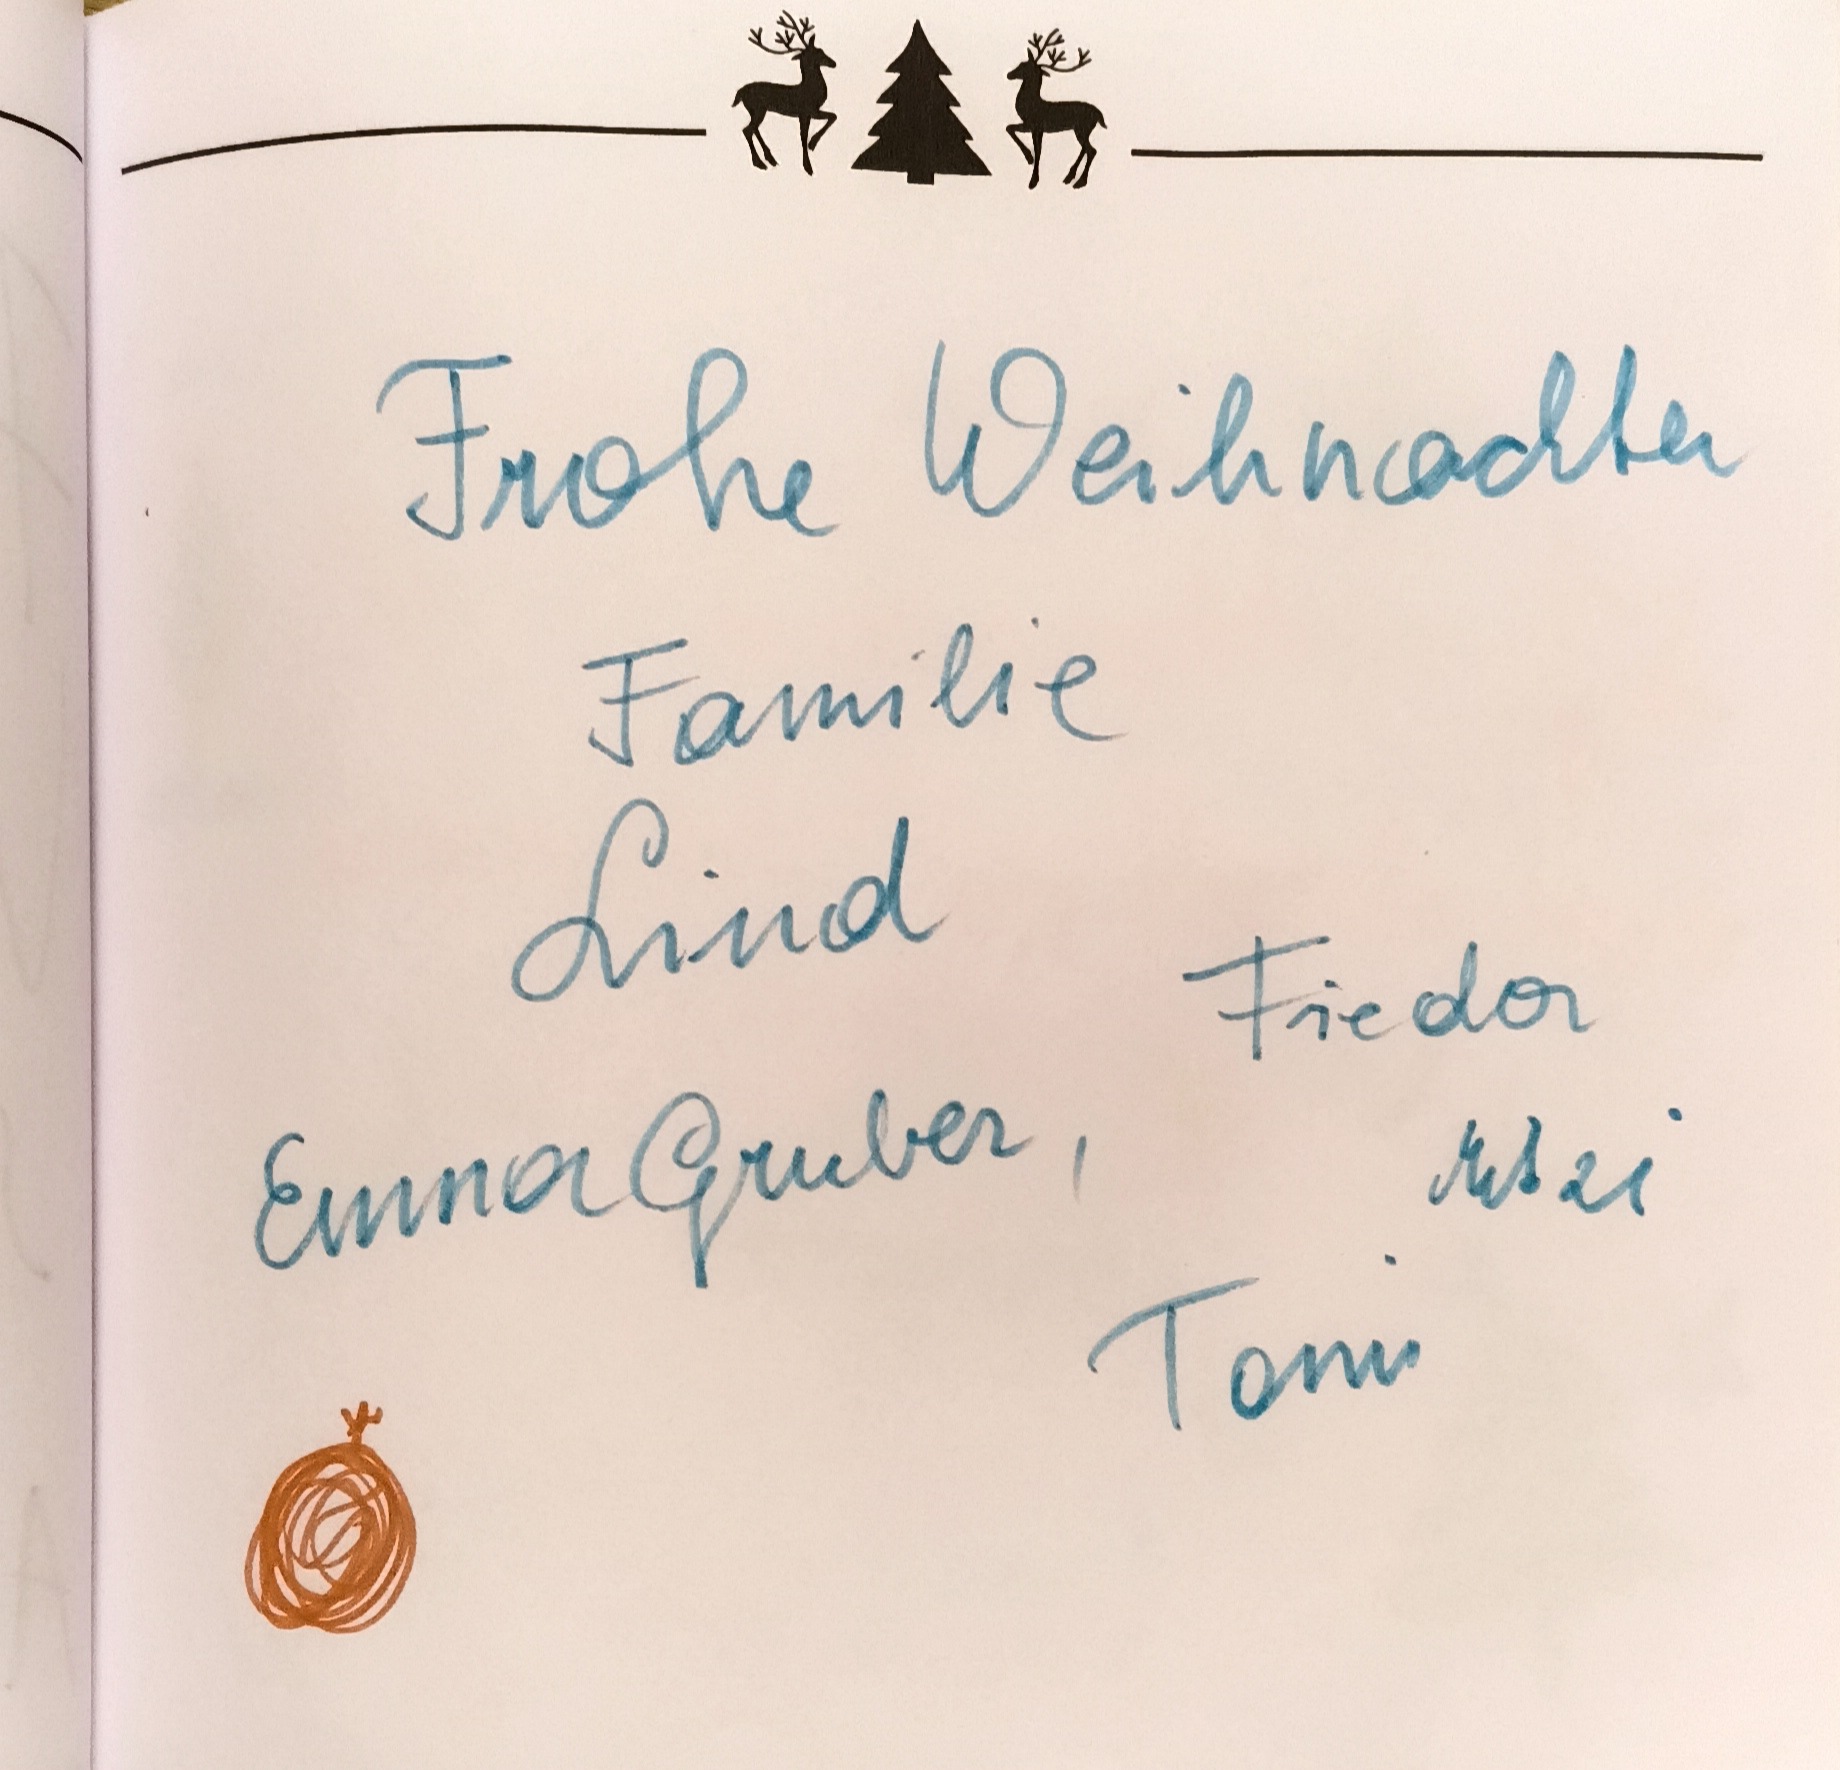 Frohe Weihnachten
Familie
Lind
Fiedor
Emma Gruber,
Toni